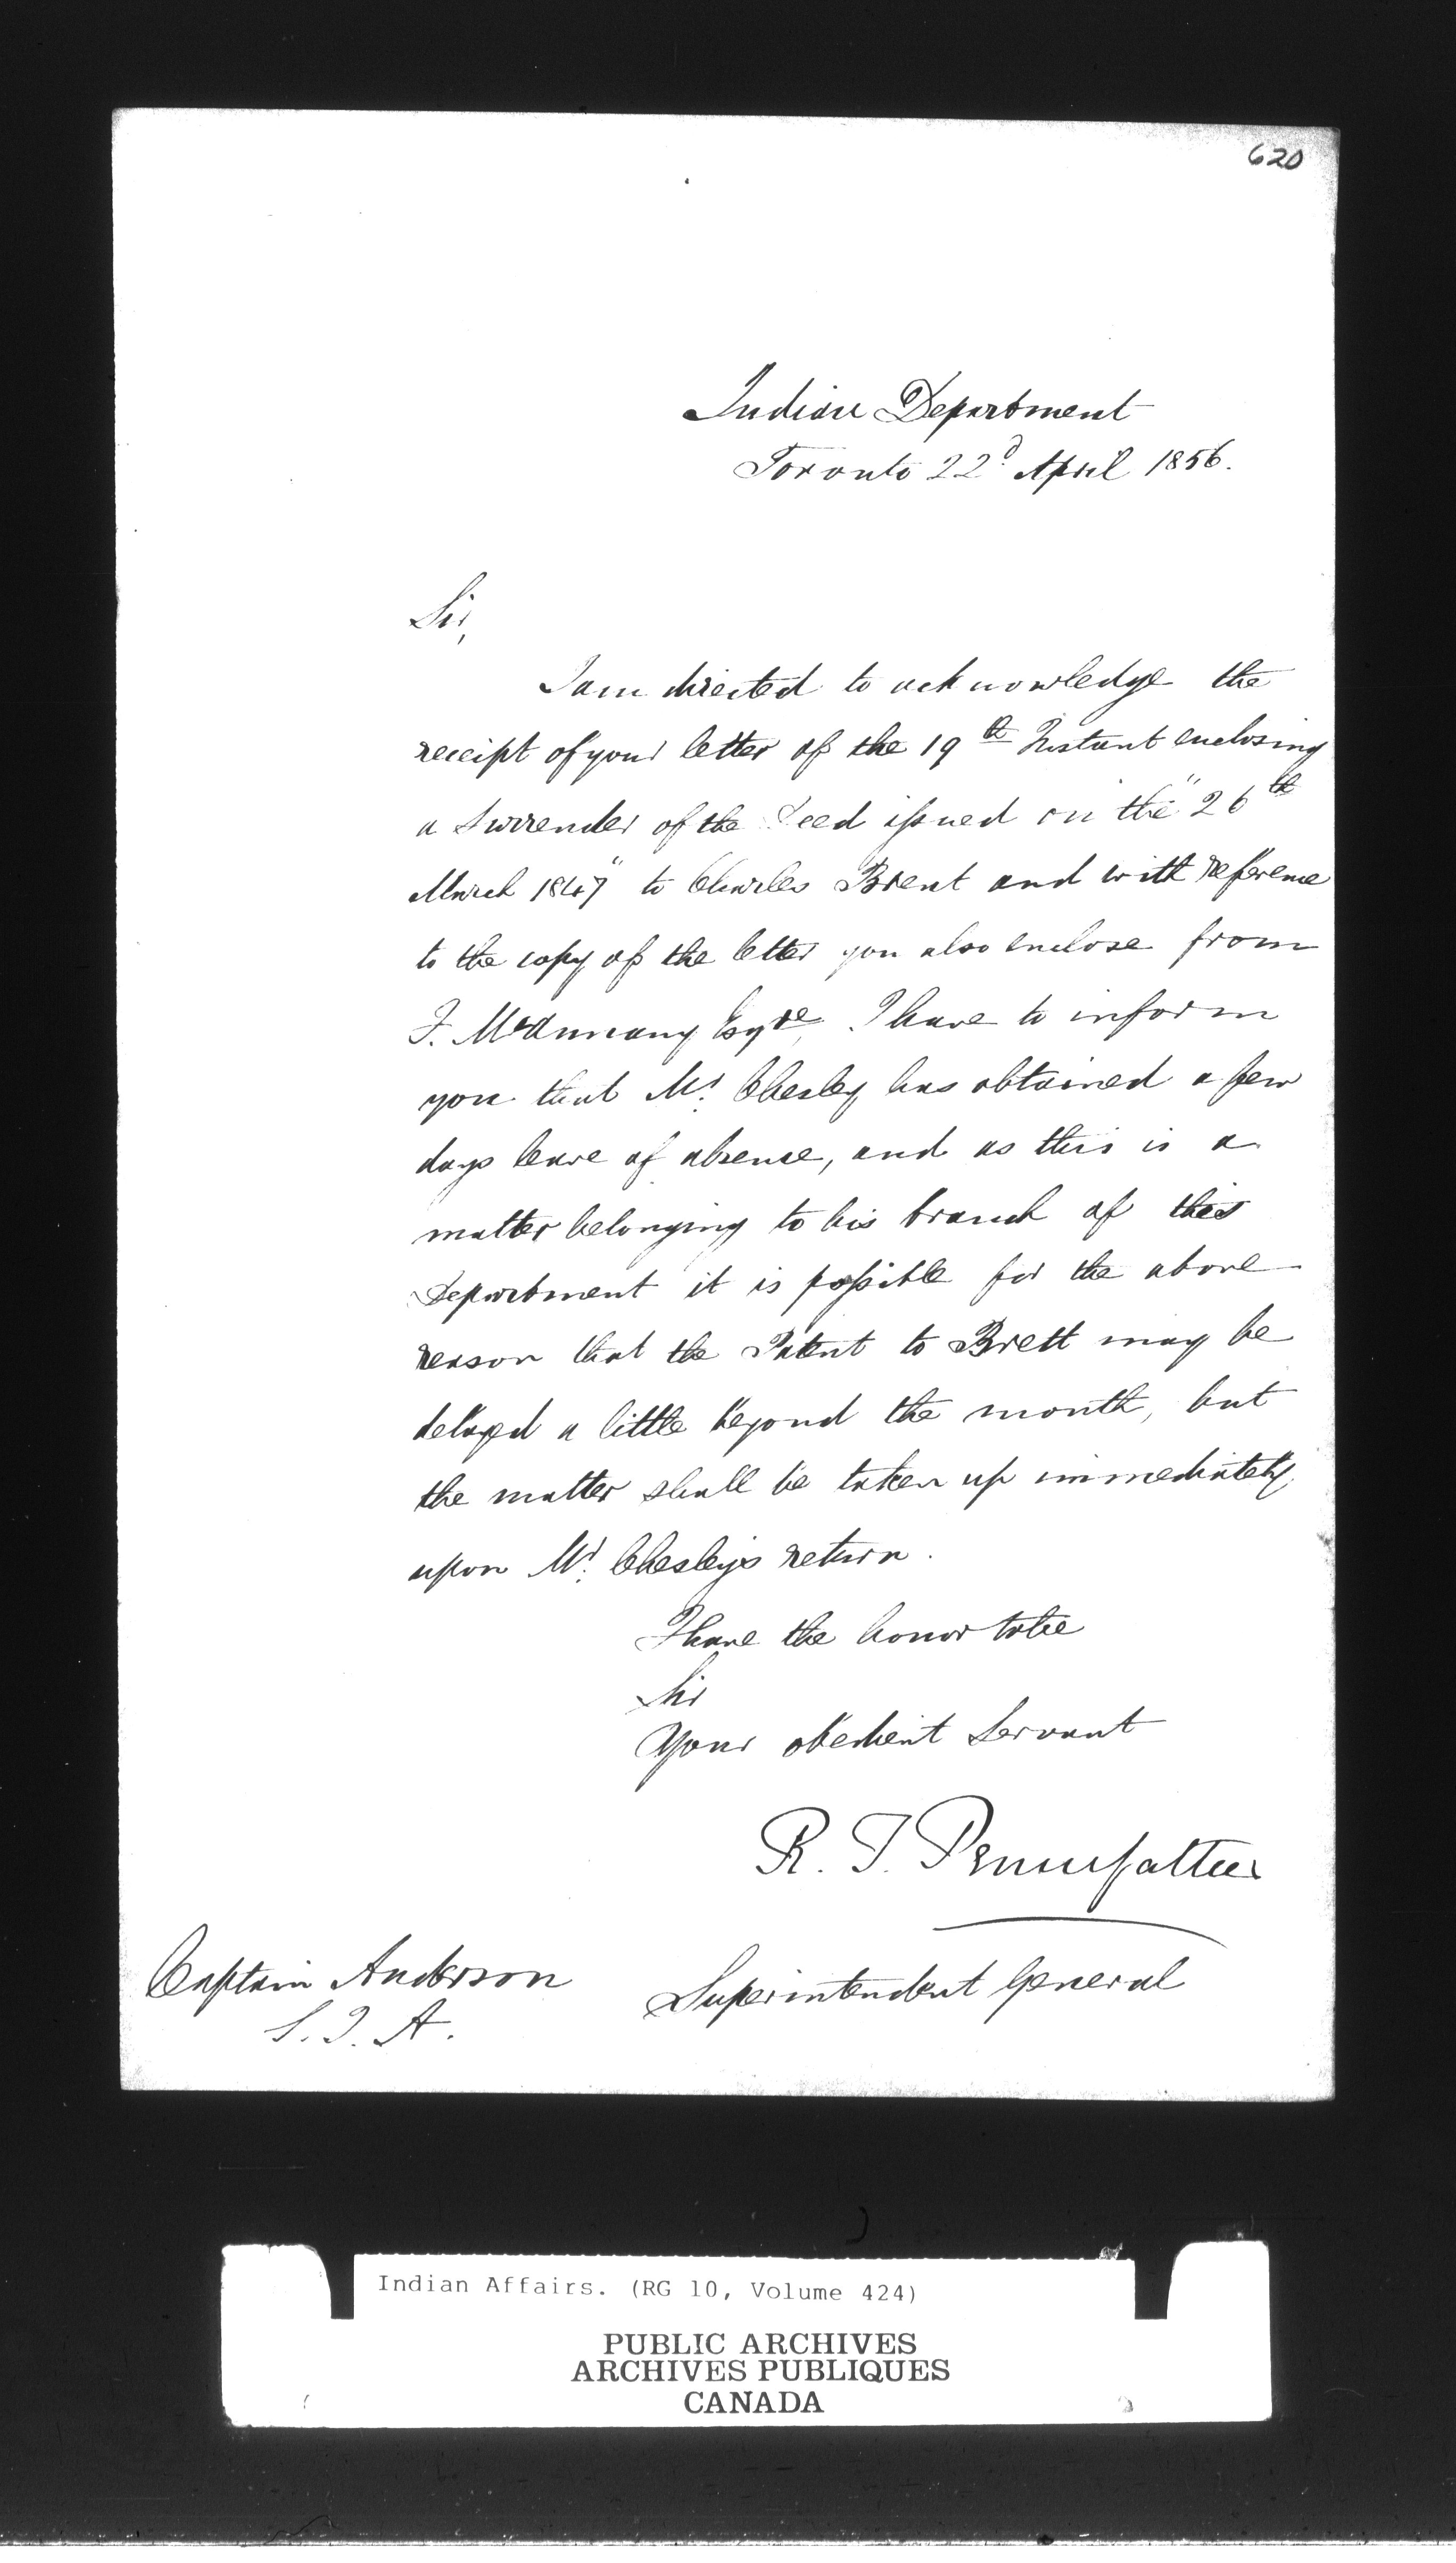 620
Indian Department
Toronto 22d April 1856.
Sir,
I am directed to acknowledge the
receipt of your letter of the 19th Instant enclosing
a Surrender of the Deed issued on the "26th
March 1847" to Charles Brent and with reference
to the copy of the letter you also enclose from
F. McAnnany Esqre, I have to inform
you that Mr. Chesley has obtained a few
days leave of absence, and as this is a
matter belonging to his branch of this
Department it is possible for the above
reason that the Patent to Brett may be
delayed a little beyond the month, but
the matter shall be taken up immediately
upon Mr. Chesley's return.
I have the honor to be
Sir
Your obedient Servant
R. T. Pennefather
Superintendent General
Captain Anderson
S. I. A.
Indian Affairs. (RG 10, Volume 424)
PUBLIC ARCHIVES
ARCHIVES PUBLIQUES
CANADA